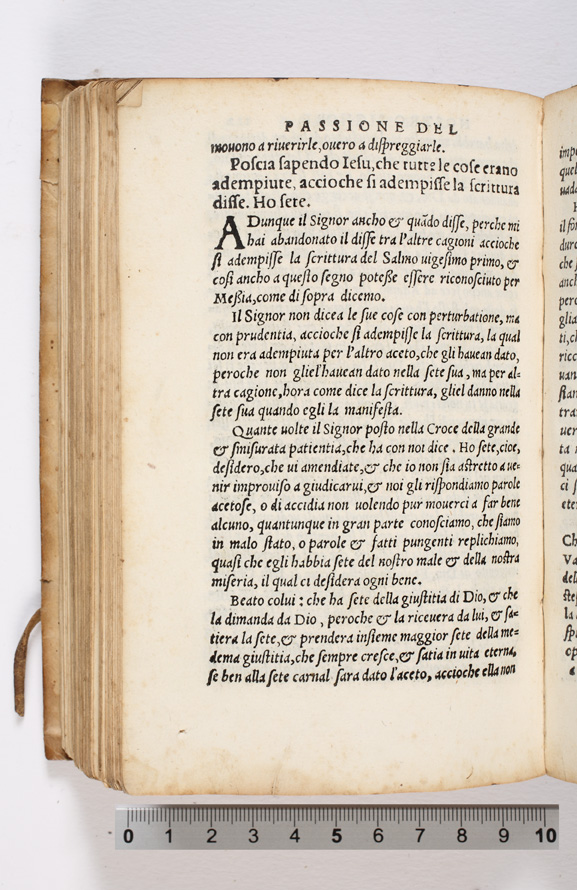 PASSIONE DEL
mouono a riuerirle, ouero a dispreggiarle.
Poscia sapendo Iesu, che tutte le cose erano
adempiute, accioche si adempisse la scrittura
disse. Ho sete.
ADunque il Signor ancho & quãdo disse, perche mi
hai abandonato il disse tra l'altre cagioni accioche
si adempisse la scrittura del Salmo uigesimo primo, &
cosi ancho a questo segno potesse essere riconosciuto per
Messia, come di sopra dicemo.
Il Signor non dicea le sue cose con perturbatione, ma
con prudentia, accioche si adempisse la scrittura, la qual
non era adempiuta per l'altro aceto, che gli hauean dato,
peroche non gliel'hauean dato nella sete sua, ma per al-
tra cagione, hora come dice la scrittura, gliel danno nella
sete sua quando egli la manifesta.
Quante uolte il Signor posto nella Croce della grande
& smisurata patientia, che ha con noi dice. Ho sete, cioe,
desidero, che ui amendiate, & che io non sia astretto a ue-
nir improuiso a giudicarui, & noi gli rispondiamo parole
acetose, o di accidia non uolendo pur mouerci a far bene
alcuno, quantunque in gran parte conosciamo, che siamo
in malo stato, o parole & fatti pungenti replichiamo,
quasi che egli habbia sete del nostro male & della nostra
miseria, il qual ci desidera ogni bene.
Beato colui : che ha sete della giustitia di Dio, & che
la dimanda da Dio, peroche & la riceuera da lui, & sa-
tiera la sete, & prendera insieme maggior sete della me-
dema giustitia, che sempre cresce, & satia in uita eterna,
se ben alla sete carnal sara dato l'aceto, accioche ella non
0 1 2 3 4 5 6 7 8 9 10